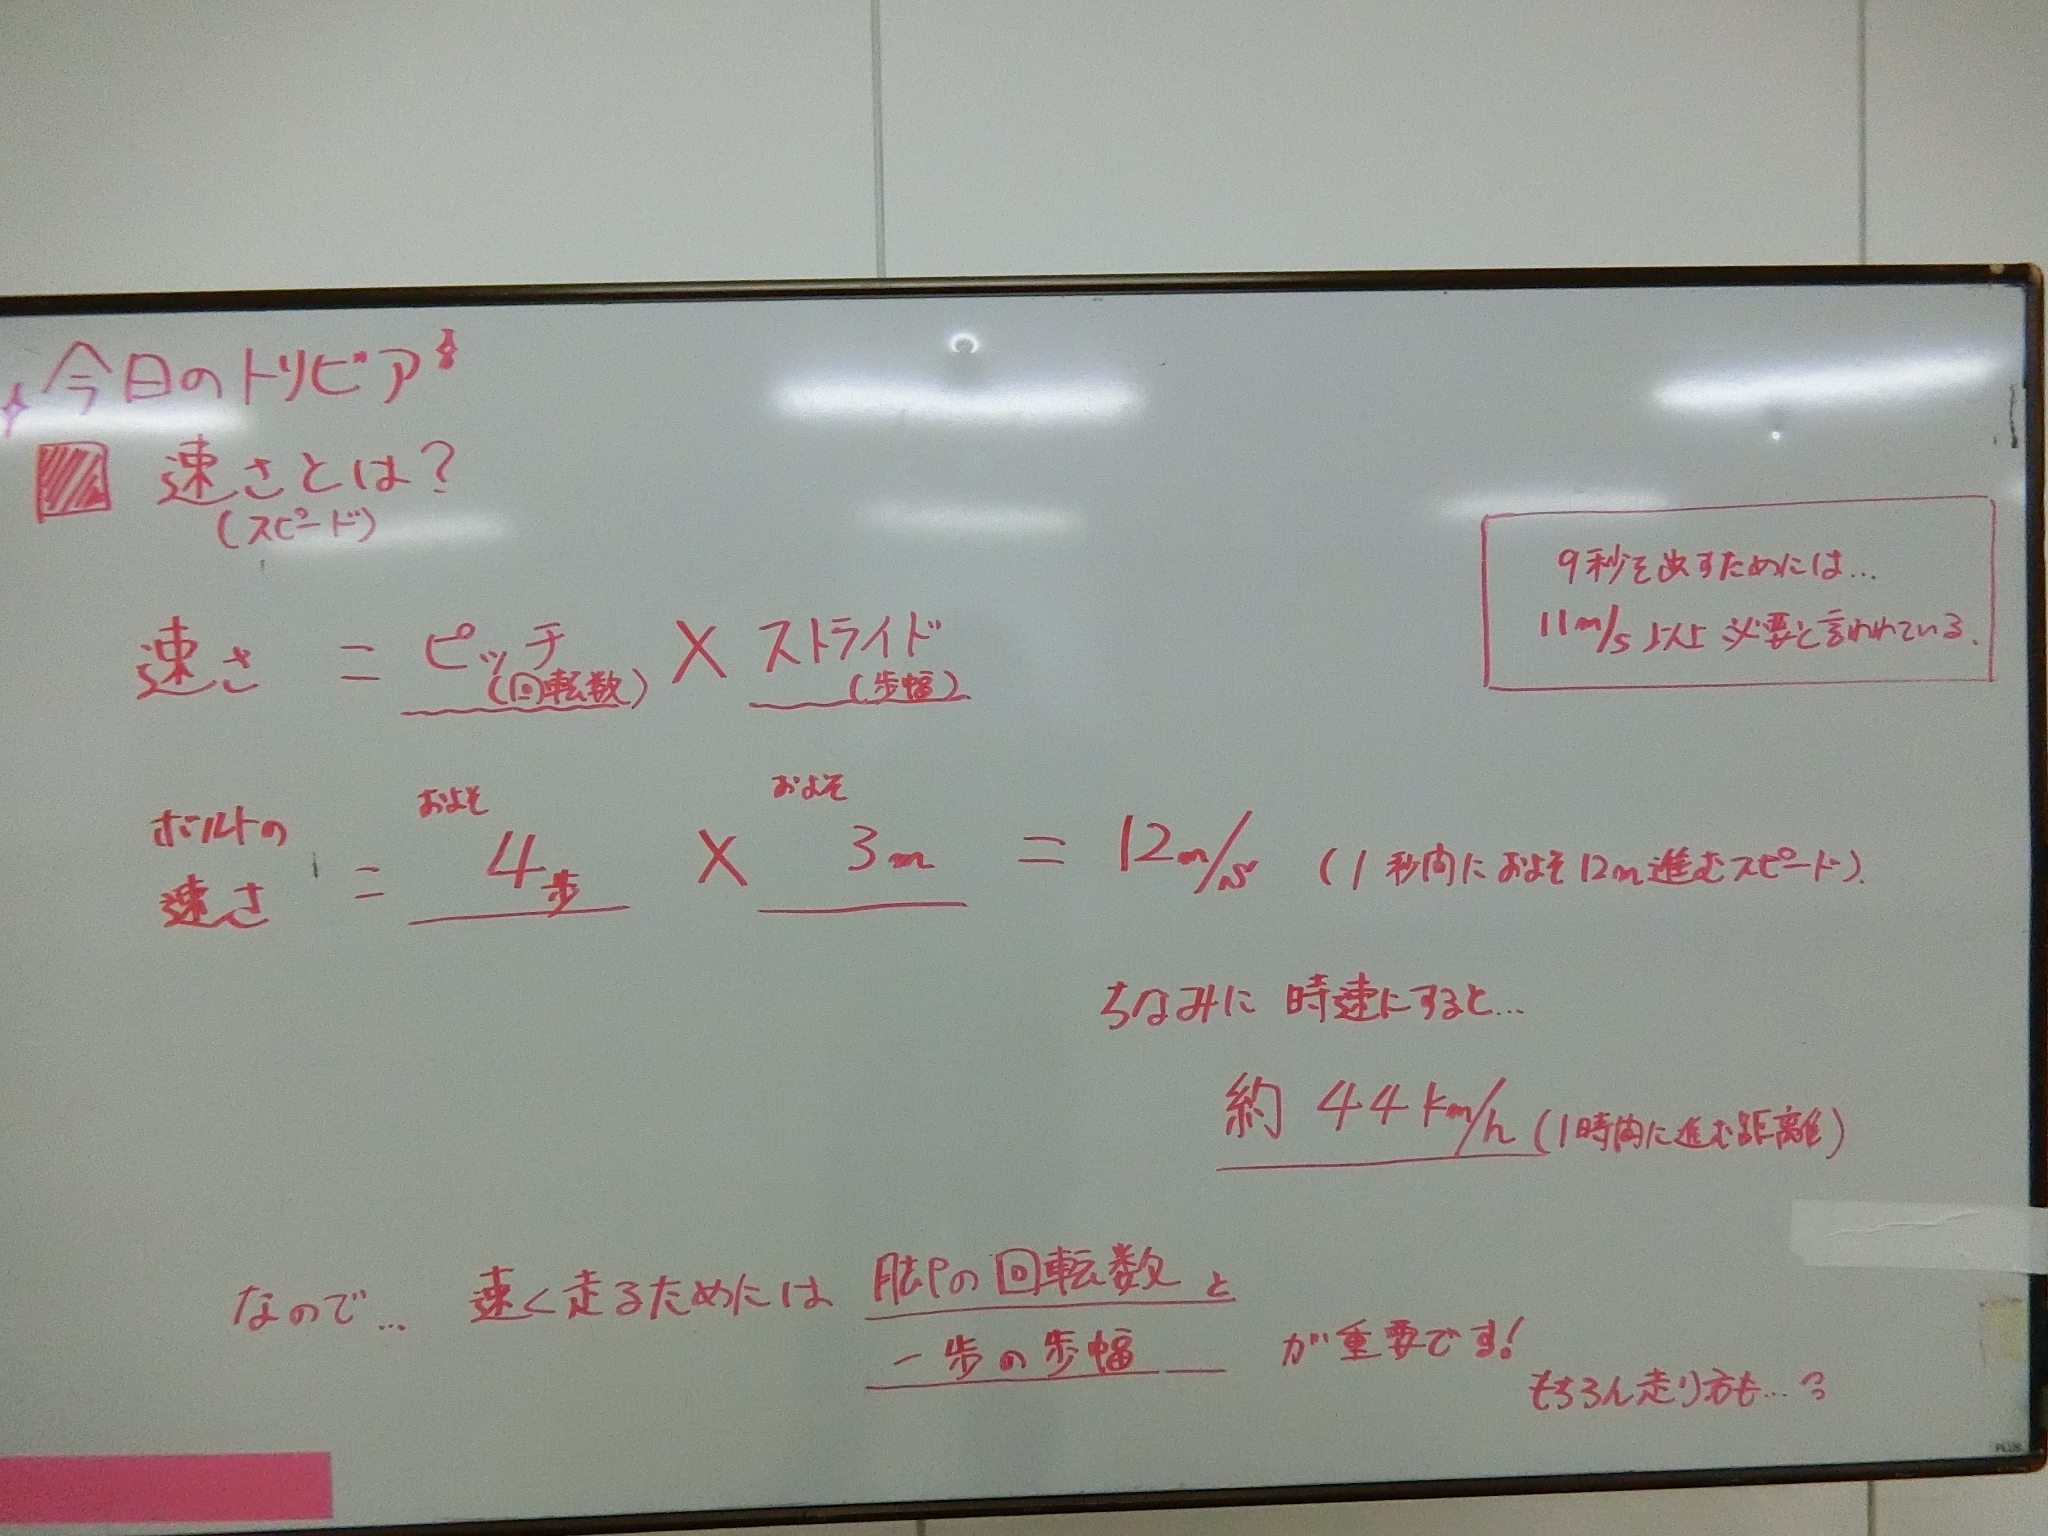 今日のトリビア
速さとは?
(スピード)
9秒を出すためには...
11m/s以上必要と言われている.
速さ = ピッチ(回転数) × ストライド(歩幅)
ボルトの速さ = およそ4歩 × およそ3m = 12m/s (1秒間におよそ12m進むスピード).
ちなみに 時速にすると...
約 44km/h (1時間に進む距離)
なので... 速く走るためには 脚の回転数と
一歩の歩幅 が重要です!
もちろん走り方も...
PLUS